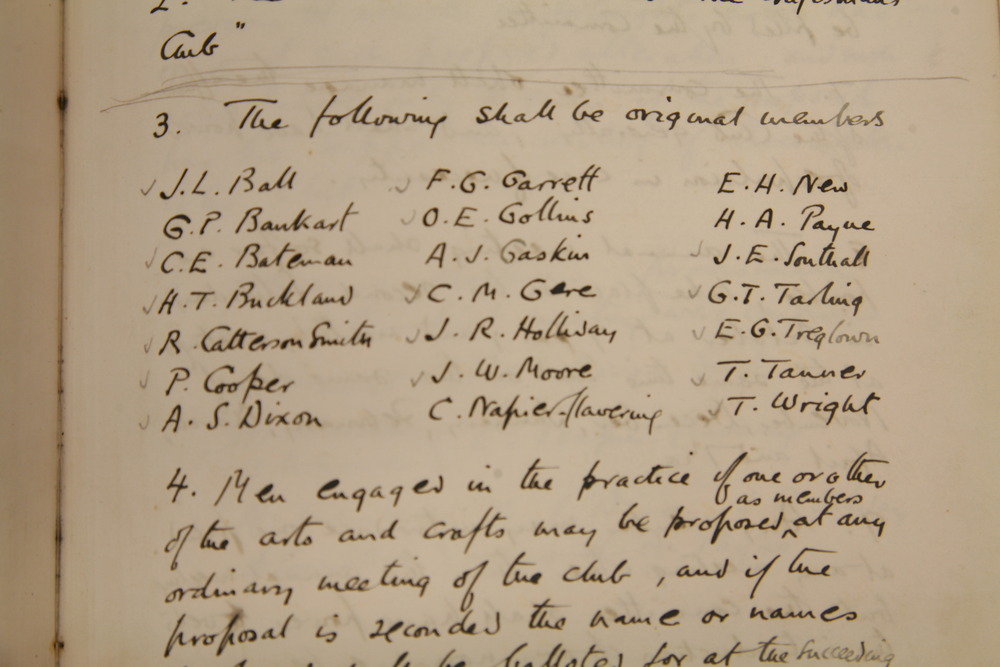 Club"
3. The following shall be original members
J. L. Ball F. G. Garrett E. H. New
G. P. Bankart O. E. Gollins H. A. Payne
C. E. Bateman A. J. Gaskin J. E. Southall
H. T. Buckland C. M. Gere G. T. Tarling
R. Catterson Smith J. R. Holliday E. G. Treglown
P. Cooper J. W. Moore T. Tanner
A. S. Dixon C. Napier-Clavering T. Wright
4. Men engaged in the practice of one or other
as members
of the arts and crafts may be proposed ^ at any
ordinary meeting of the club, and if the
proposal is seconded the name or names
be balloted for at the succeeding